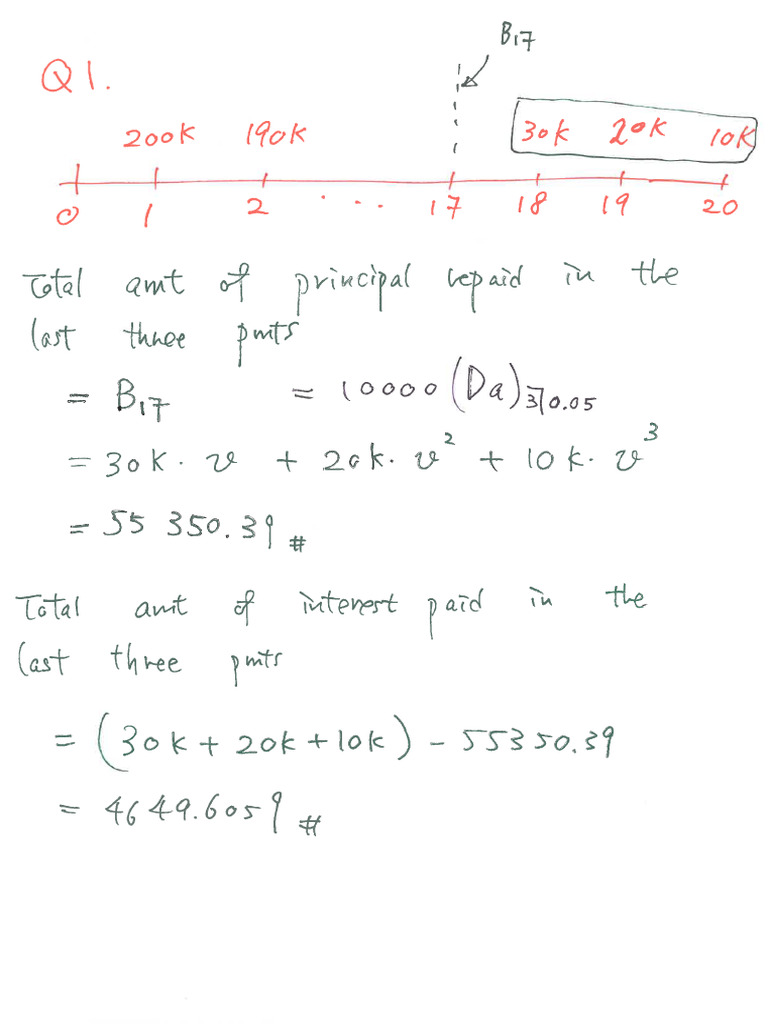 B₁₇
Q1.
200k 190k 30k 20k 10k
0 1 2 ... 17 18 19 20
Total amt of principal repaid in the
last three pmts
= B₁₇ = 10000 (Da)₃⌉0.05
= 30k · v + 20k · v² + 10k · v³
= 55 350.39 #
Total amt of interest paid in the
last three pmts
= (30k + 20k + 10k) - 55350.39
= 4649.6059 #